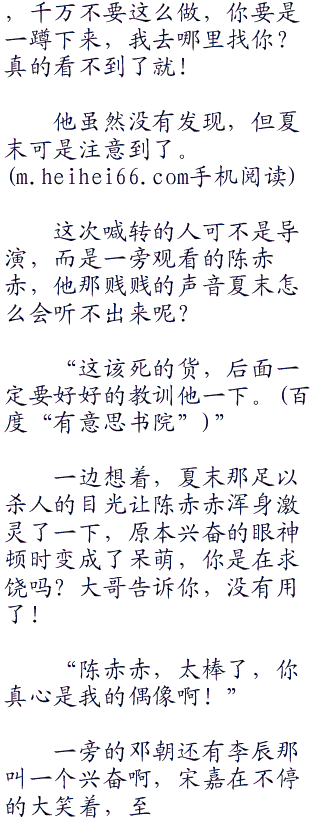 ，千万不要这么做，你要是
一蹲下来，我去哪里找你？
真的看不到了就！
他虽然没有发现，但夏
末可是注意到了。
(m.heihei66.com手机阅读)
这次喊转的人可不是导
演，而是一旁观看的陈赤
赤，他那贱贱的声音夏末怎
么会听不出来呢？
“这该死的货，后面一
定要好好的教训他一下。(百
度“有意思书院”)”
一边想着，夏末那足以
杀人的目光让陈赤赤浑身激
灵了一下，原本兴奋的眼神
顿时变成了呆萌，你是在求
饶吗？大哥告诉你，没有用
了！
“陈赤赤，太棒了，你
真心是我的偶像啊！”
一旁的邓朝还有李辰那
叫一个兴奋啊，宋嘉在不停
的大笑着，至